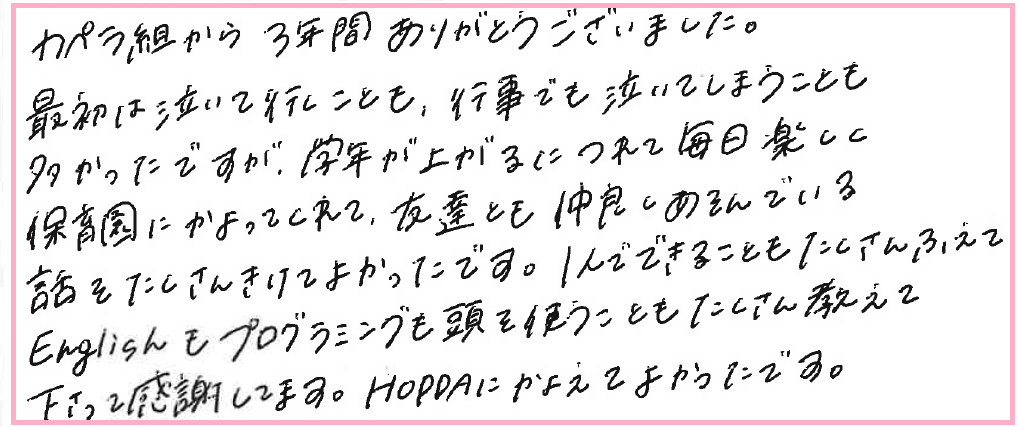 カペラ組から 3年間 ありがとうございました。
最初は泣いて行くことも、行事でも泣いてしまうことも
多かったですが、学年が上がるにつれて毎日楽しく
保育園にかよってくれて、友達とも仲良くあそんでいる
話をたくさんきけてよかったです。1人でできることもたくさんふえて
Englishもプログラミングも頭を使うこともたくさん教えて
下さって感謝してます。HOPPAにかよえてよかったです。